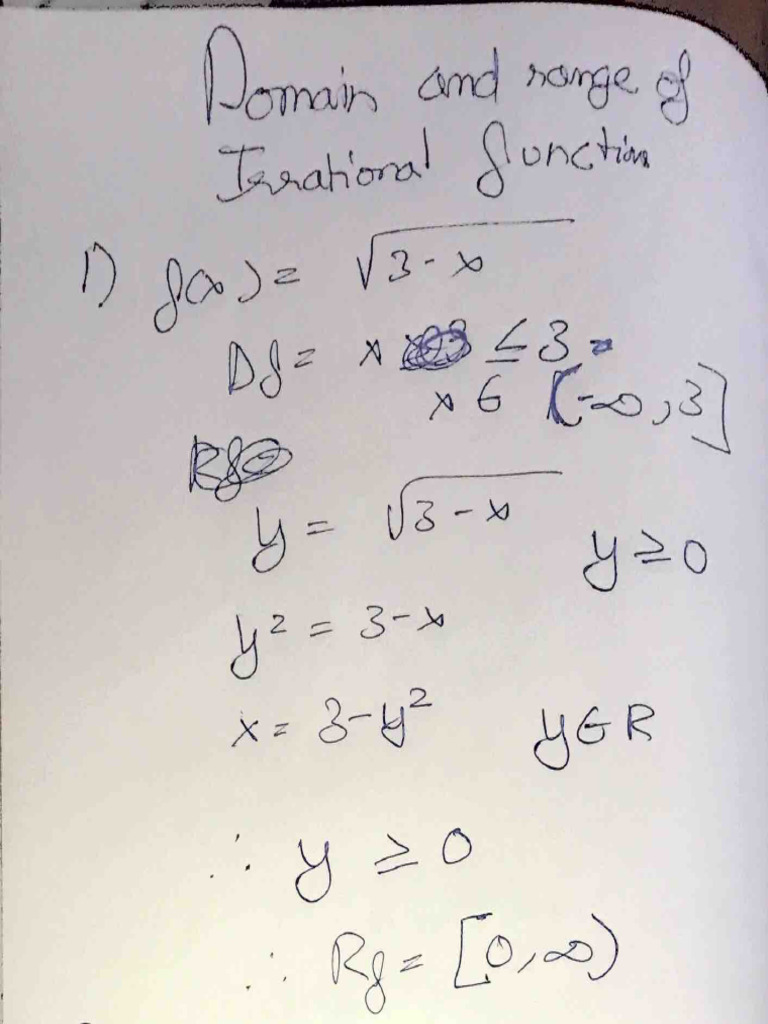 Domain and range of
Irrational function
1) f(x) = √3-x
Df = x ≤ 3
x ∈ (-∞, 3]
y = √3-x y ≥ 0
y² = 3-x
x = 3-y² y ∈ R
∴ y ≥ 0
∴ Rf = [0, ∞)